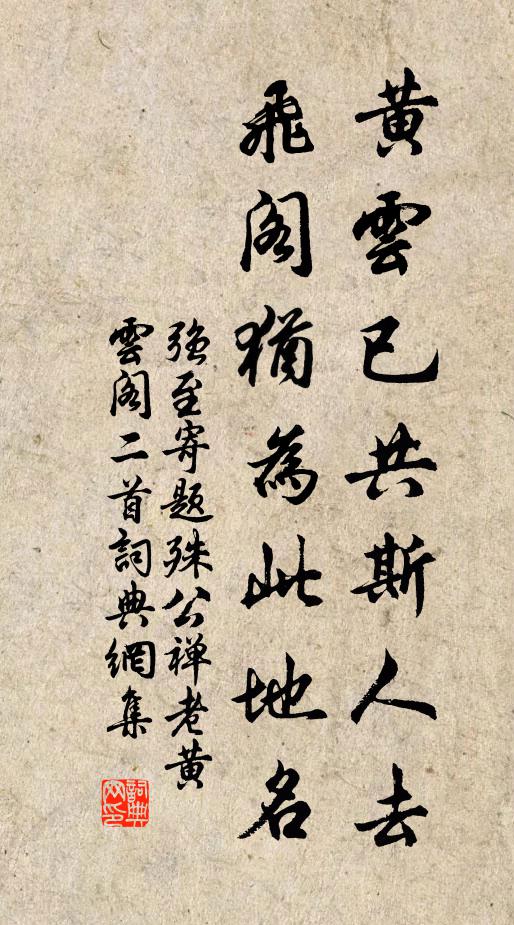 黃雲已共斯人去
飛閣猶為此地名
強至寄題殊公禅老黄
雲阁二首詞典網集
詞典
网印